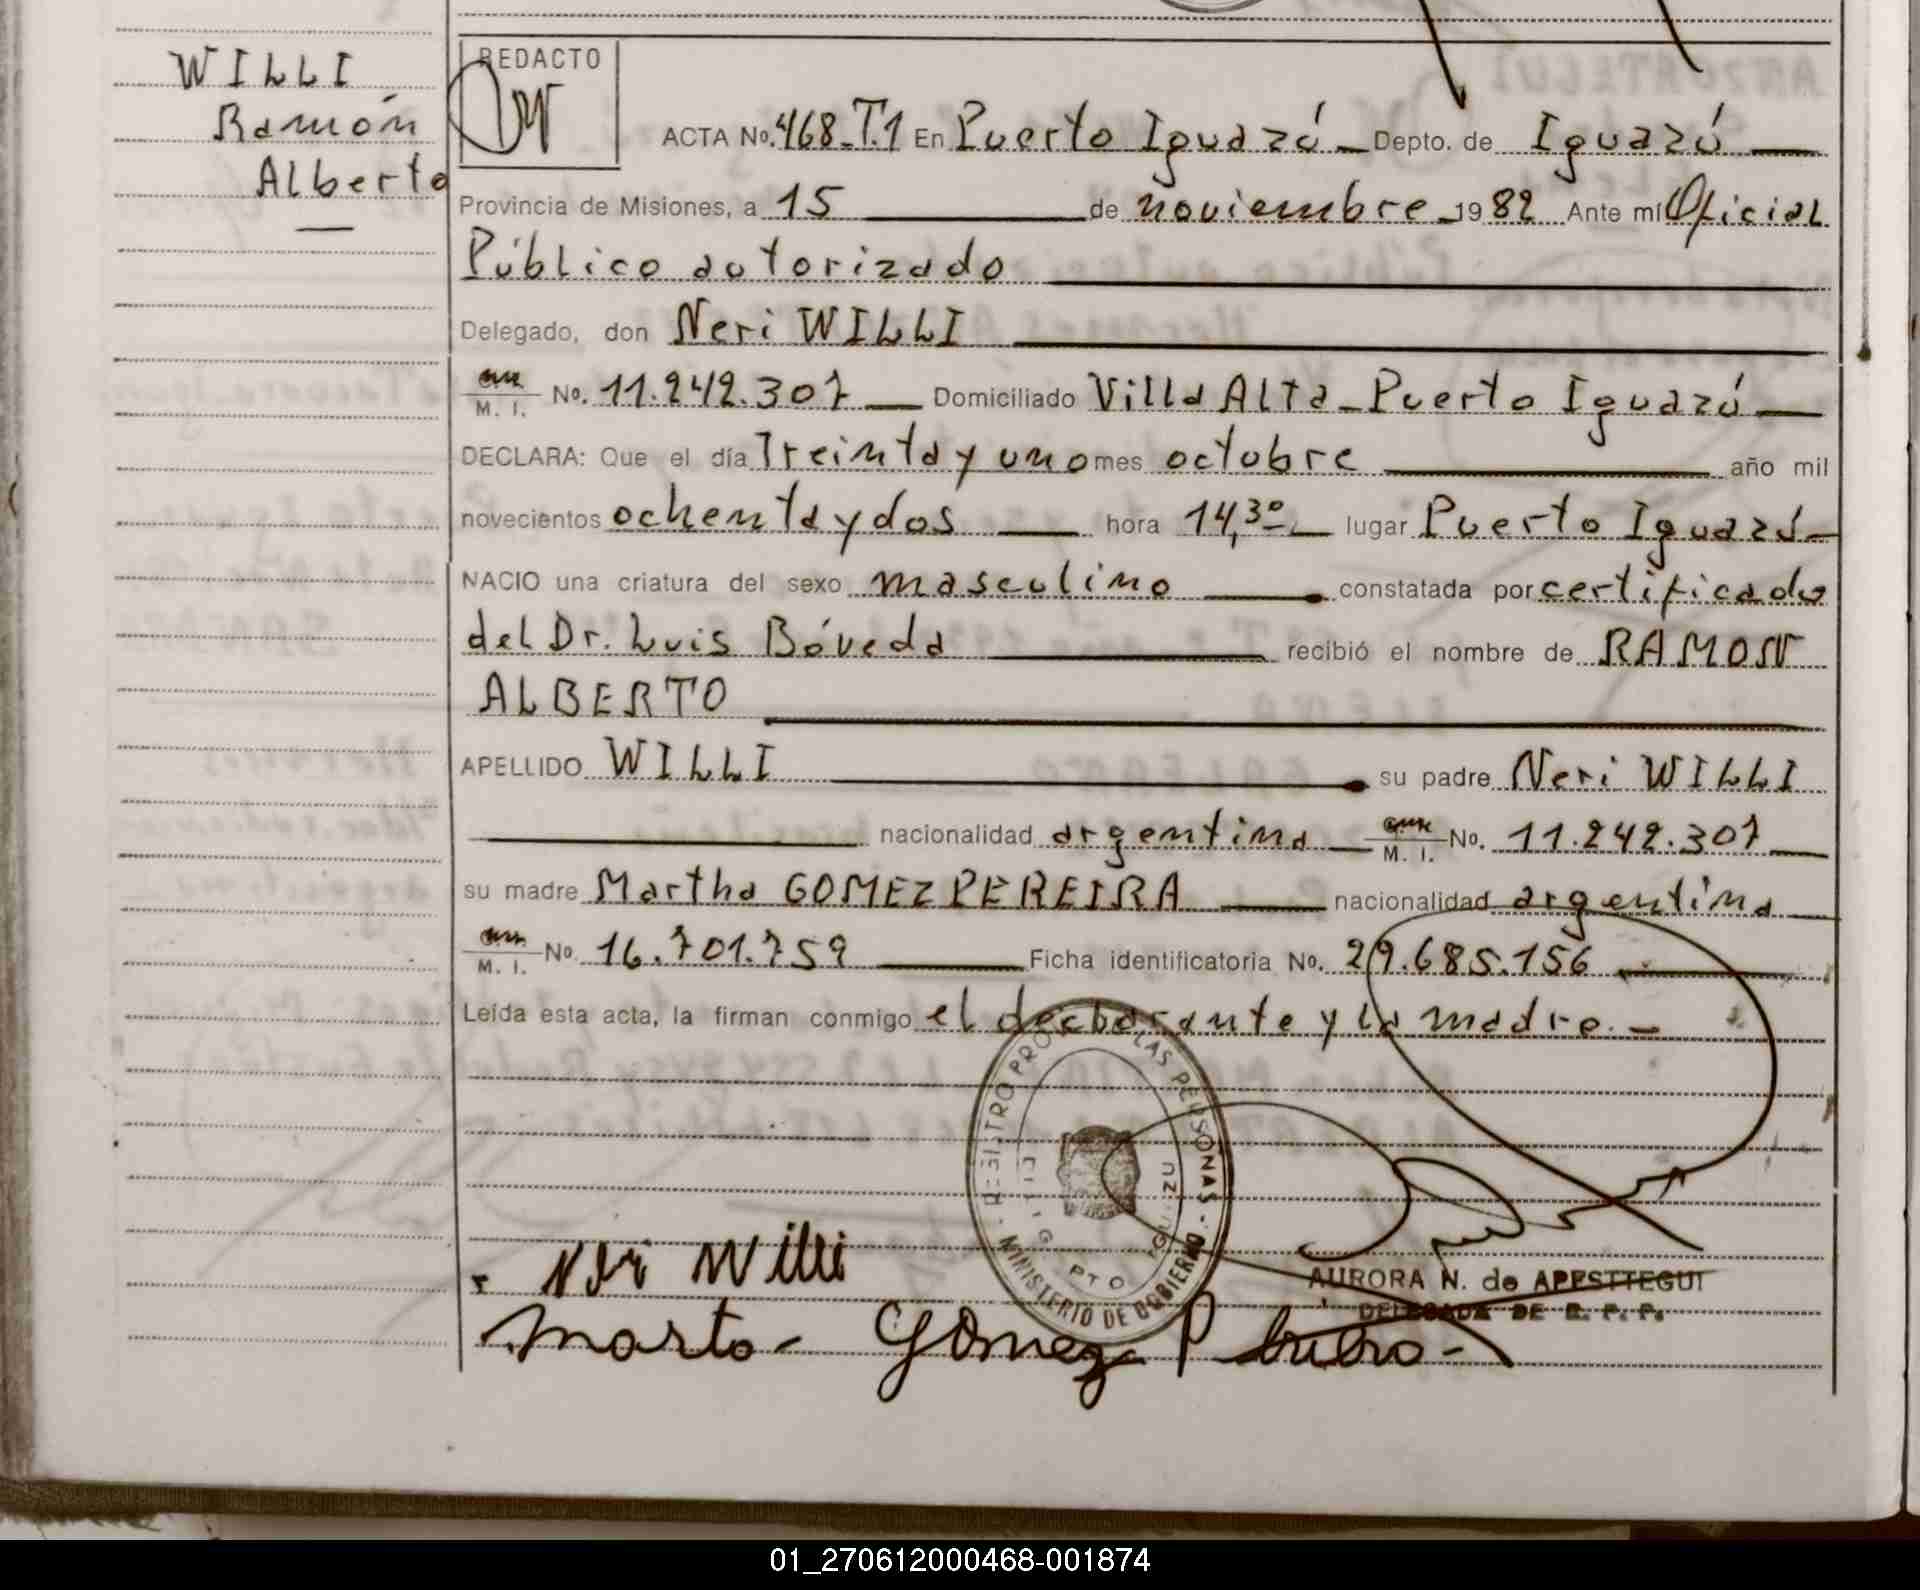 WILLI
Ramón
Alberto
REDACTO
ACTA No. 468_T.1 En Puerto Iguazú _ Depto. de Iguazú
Provincia de Misiones, a 15 de noviembre _ 1982 Ante mí Oficial
Público autorizado
Delegado, don Neri WILLI
M. I. No. 11.242.307 Domiciliado Villa Alta _ Puerto Iguazú
DECLARA: Que el día Treinta y uno mes octubre año mil
novecientos ochenta y dos hora 14,30 lugar Puerto Iguazú
NACIO una criatura del sexo masculino constatada por certificado
del Dr. Luis Bóveda recibió el nombre de RAMON
ALBERTO
APELLIDO WILLI su padre Neri WILLI
nacionalidad argentina M. I. No. 11.242.307
su madre Martha GOMEZ PEREIRA nacionalidad argentina
M. I. No. 16.701.759 Ficha identificatoria No. 29.685.156
Leída esta acta, la firman conmigo el declarante y la madre. _
MINISTERIO DE GOBIERNO
LAS PERSONAS
PTO
Neri Willi
AURORA N. de APESTTEGUI
DELEGADA DE R. P. P.
Marta Gómez P
01_270612000468-001874